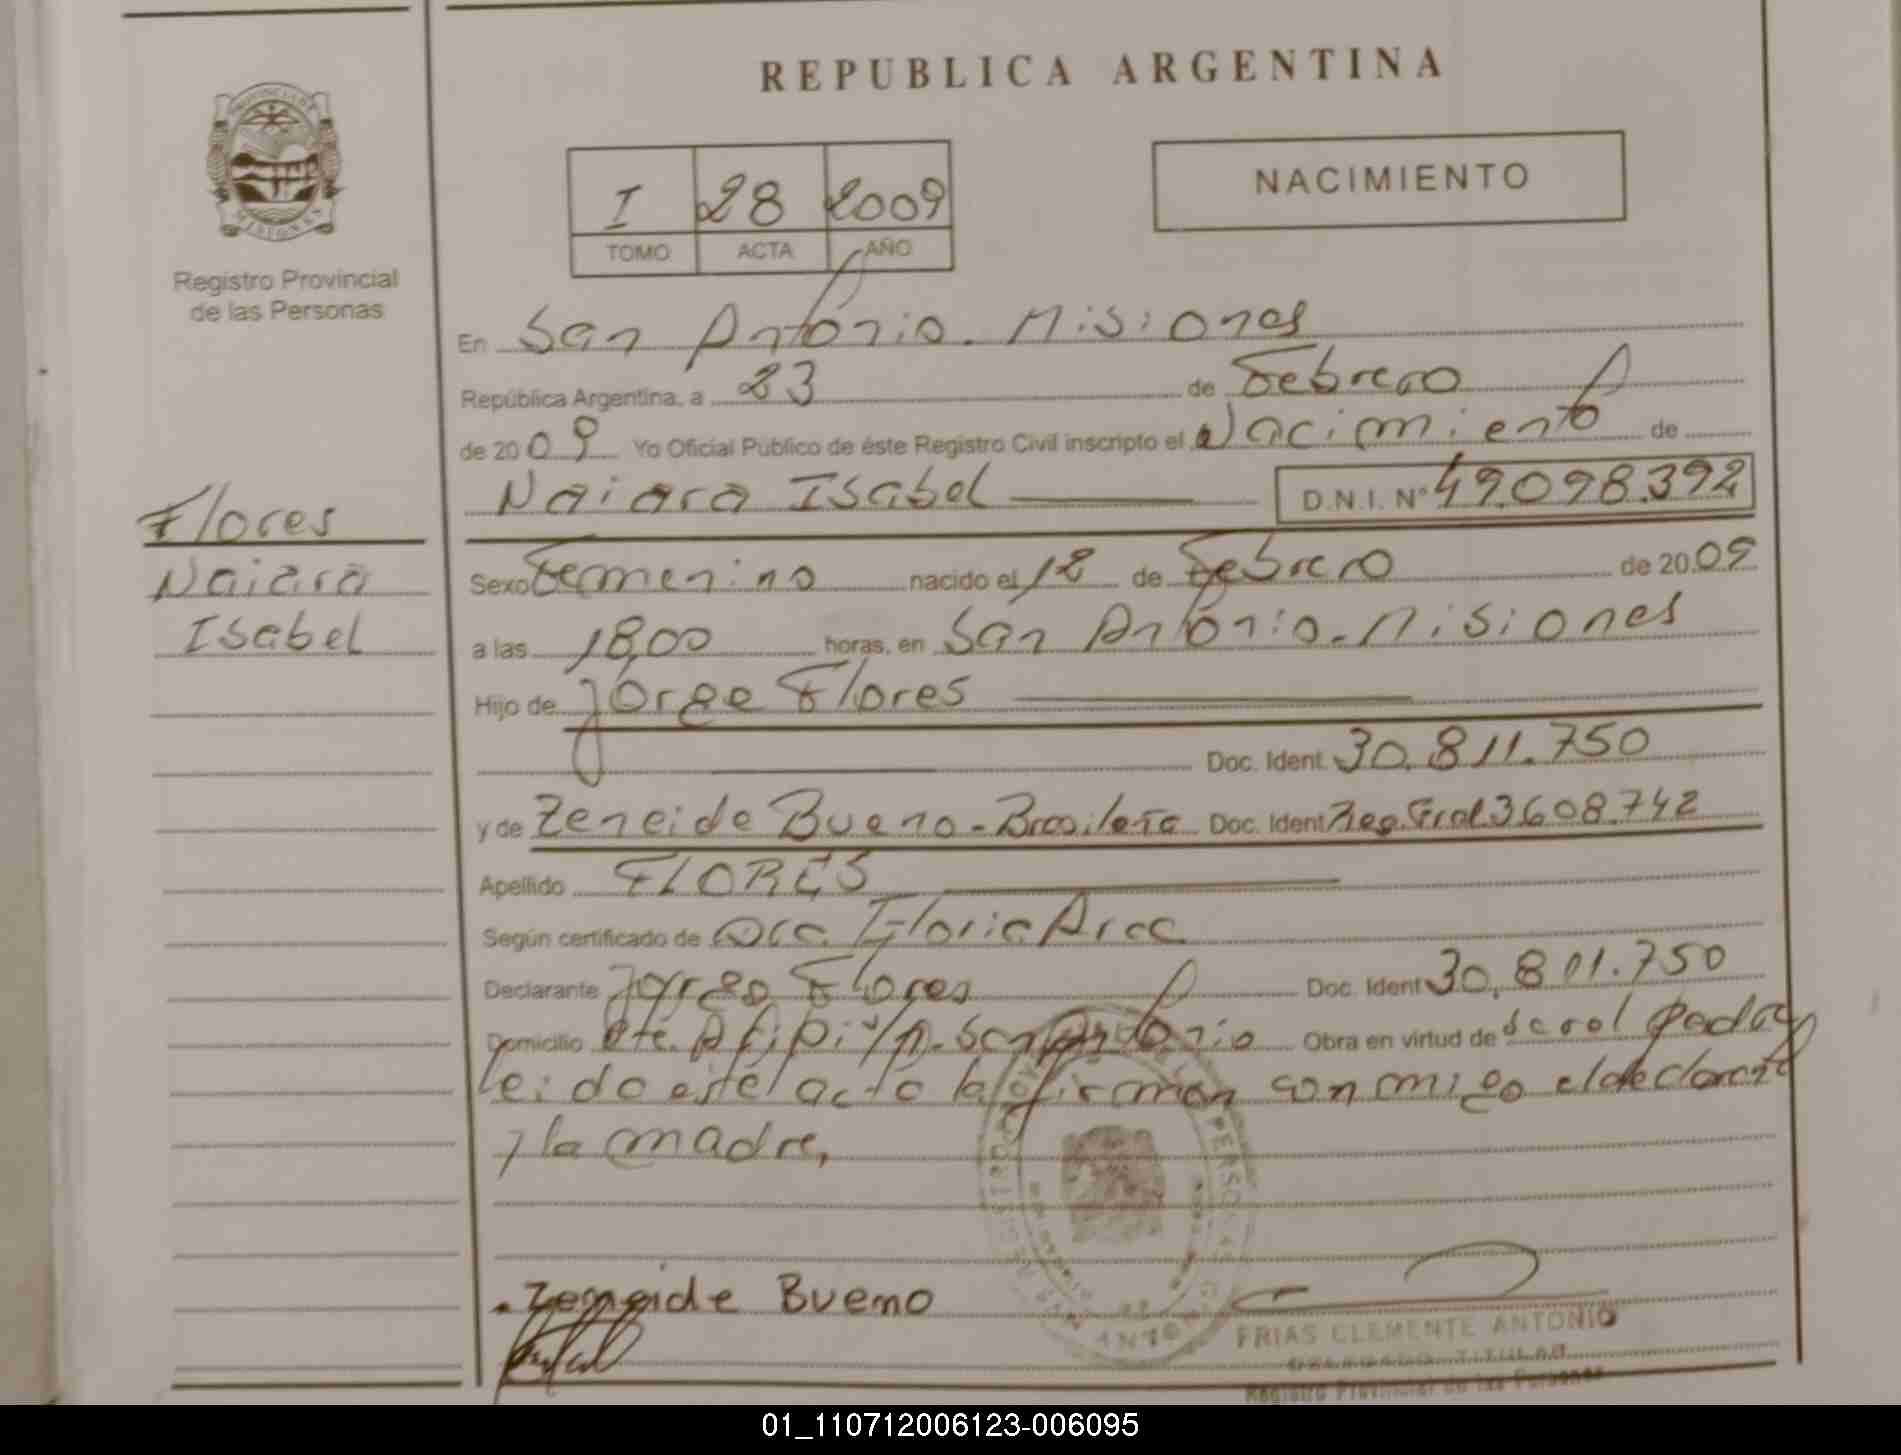 REPUBLICA ARGENTINA
NACIMIENTO
I 28 2009
TOMO ACTA AÑO
PROVINCIA DE
MISIONES
Registro Provincial
de las Personas
Flores
Naiara
Isabel
En San Antonio. Misiones
República Argentina, a 23 de Febrero
de 2009 Yo Oficial Público de éste Registro Civil inscripto el Nacimiento de
Naiara Isabel D.N.I. Nº 49.098.392
Sexo Femenino nacido el 12 de Febrero de 2009
a las 18,00 horas, en San Antonio. Misiones
Hijo de Jorge Flores
Doc. Ident. 30.811.750
y de Zeneide Bueno - Brasileña Doc. Ident Reg. Gral 3608.742
Apellido FLORES
Según certificado de
Declarante Jorge Flores Doc. Ident 30.811.750
Domicilio San Antonio Obra en virtud de
leido este acta la firman conmigo el declarante
y la madre,
Zeneide Bueno
FRIAS CLEMENTE ANTONIO
DELEGADO TITULAR
Registro Provincial de las Personas
01_110712006123-006095